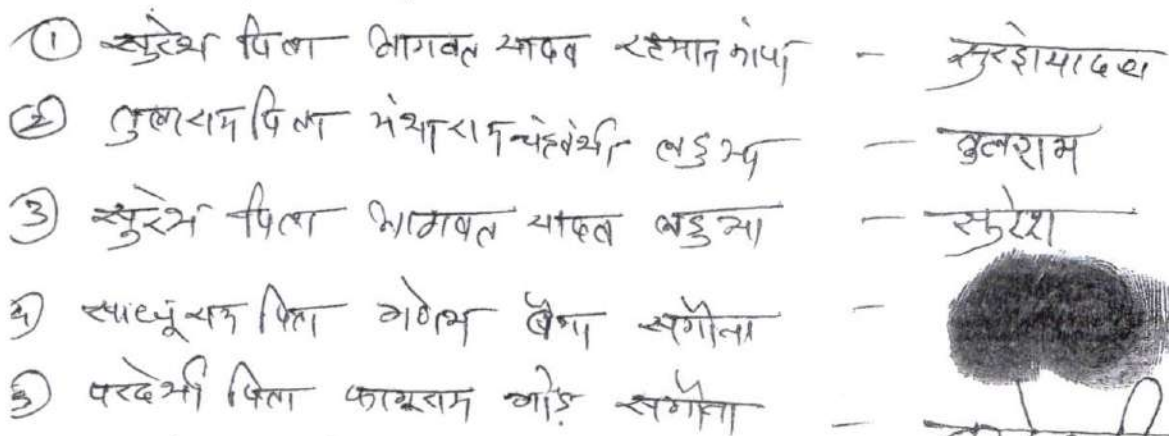 ① सुरेश पिता भागवत यादव रहमान कांपा - सुरेश यादव
② तुलाराम पिता मंथाराम चंद्रवंशी लडुआ - तुलाराम
③ सुरेश पिता भागवत यादव लडुआ - सुरेश
④ साधूराम पिता गणेश बैगा सगौना -
⑤ परदेशी पिता फागूराम गोंड सगौना -